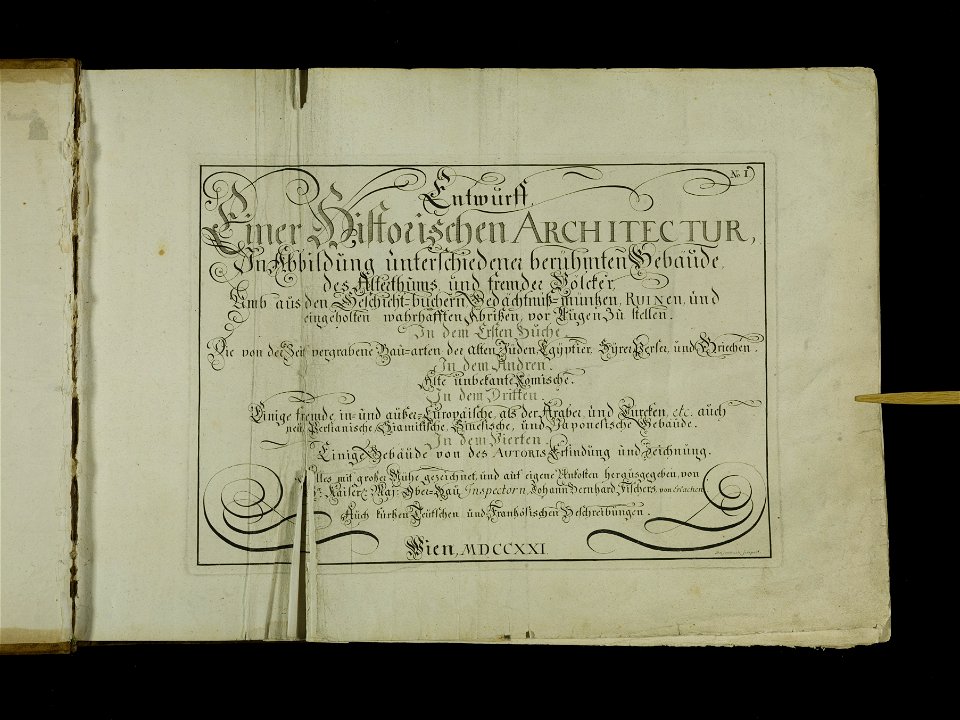 No. I
Entwurff
Einer Historischen ARCHITECTUR,
In Abbildung unterschiedener berühmten Gebäude,
des Alterthums und fremder Völcker,
Umb aus den Geschicht-büchern, Gedächtnüß-müntzen, RUINEN, und
eingeholten wahrhafften Abrißen, vor Augen zu stellen.
In dem Ersten Buche.
Die von der Zeit vergrabene Bau-arten der alten Juden, Egÿptier, Sÿrer, Perser, und Griechen.
In dem Andren.
Alte unbekante Römische.
In dem Dritten.
Einige fremde, in- und außer-Europäische, als der Araber, und Türcken, etc. auch
neue Persianische, Siamitische, Sinesische, und Japonesische Gebäude.
In dem Vierten.
Einige Gebäude von des AUTORIS Erfindung und Zeichnung.
Alles mit großer Mühe gezeichnet, und auf eigene Unkosten herausgegeben, von
Kaiserl. Maj. Ober-Bau Inspectorn, Johann Bernhard Fischers, von Erlachen
Auch kurtzen Teutschen und Frantzösischen Beschreibungen.
Wien, MDCCXXI.